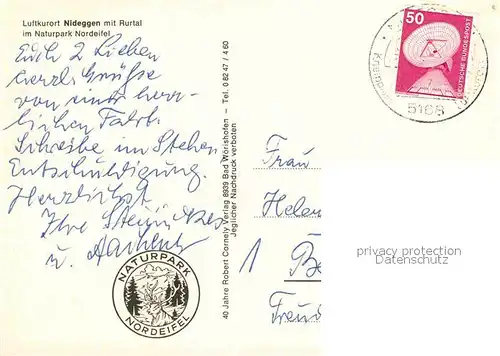 Luftkurort Nideggen mit Rurtal
im Naturpark Nordeifel
Euch 2 Lieben
herzl. Grüße
von einer herr-
lichen Fahrt.
Schreibe im Stehen
Entschuldigung.
Herzlichst
Ihre
u.
NATURPARK
NORDEIFEL
40 Jahre Robert Cornely Verlag 8939 Bad Wörishofen – Tel. 0 82 47 / 4 60
Jeglicher Nachdruck verboten
50
DEUTSCHE BUNDESPOST
5166
Frau
Helen
1 Be
Freud
privacy protection
Datenschutz